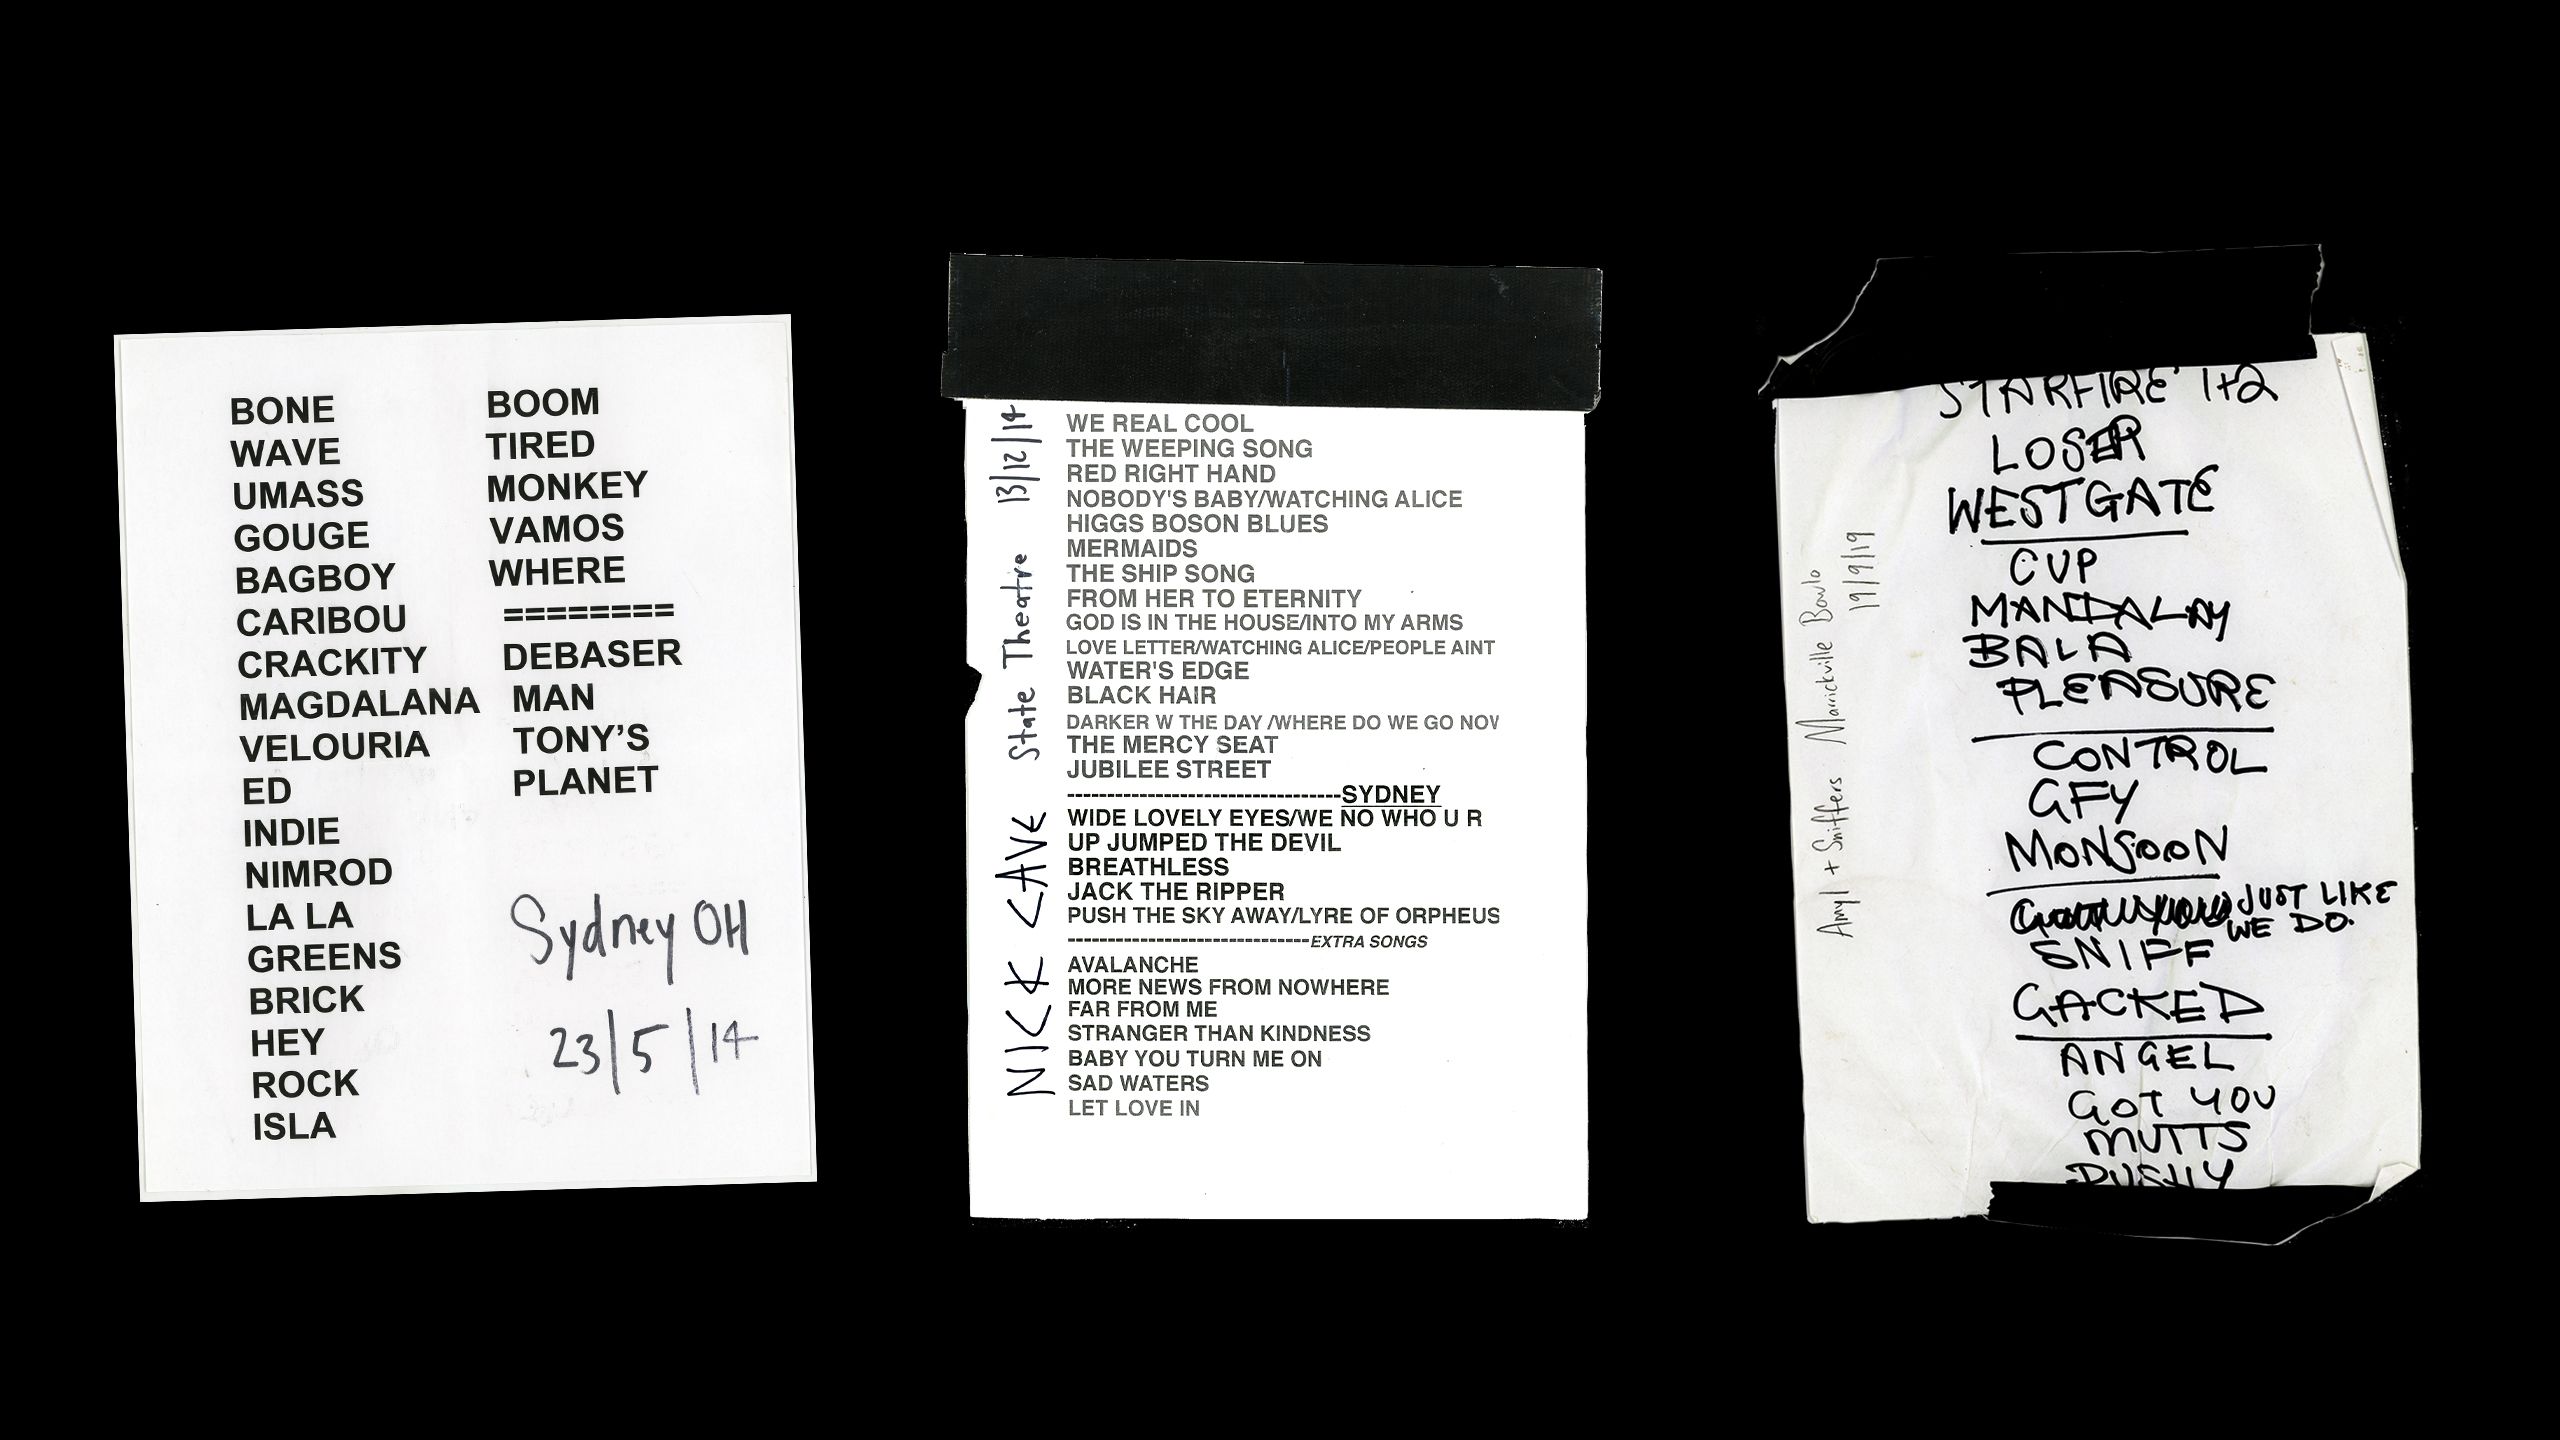 BONE
WAVE
UMASS
GOUGE
BAGBOY
CARIBOU
CRACKITY
MAGDALANA
VELOURIA
ED
INDIE
NIMROD
LA LA
GREENS
BRICK
HEY
ROCK
ISLA
BOOM
TIRED
MONKEY
VAMOS
WHERE
========
DEBASER
MAN
TONY'S
PLANET
Sydney OH
23/5/14
NICK CAVE State Theatre 13/12/14
WE REAL COOL
THE WEEPING SONG
RED RIGHT HAND
NOBODY'S BABY/WATCHING ALICE
HIGGS BOSON BLUES
MERMAIDS
THE SHIP SONG
FROM HER TO ETERNITY
GOD IS IN THE HOUSE/INTO MY ARMS
LOVE LETTER/WATCHING ALICE/PEOPLE AINT
WATER'S EDGE
BLACK HAIR
DARKER W THE DAY /WHERE DO WE GO NOW
THE MERCY SEAT
JUBILEE STREET
---------------------------------SYDNEY
WIDE LOVELY EYES/WE NO WHO U R
UP JUMPED THE DEVIL
BREATHLESS
JACK THE RIPPER
PUSH THE SKY AWAY/LYRE OF ORPHEUS
-----------------------------EXTRA SONGS
AVALANCHE
MORE NEWS FROM NOWHERE
FAR FROM ME
STRANGER THAN KINDNESS
BABY YOU TURN ME ON
SAD WATERS
LET LOVE IN
Amyl + Sniffers Marrickville Bowlo
19/9/19
STARFIRE 1+2
LOSER
WESTGATE
CUP
MANDALAY
BALA
PLEASURE
CONTROL
GFY
MONSOON
JUST LIKE
WE DO.
SNIFF
GACKED
ANGEL
GOT YOU
MUTTS
PUSHY